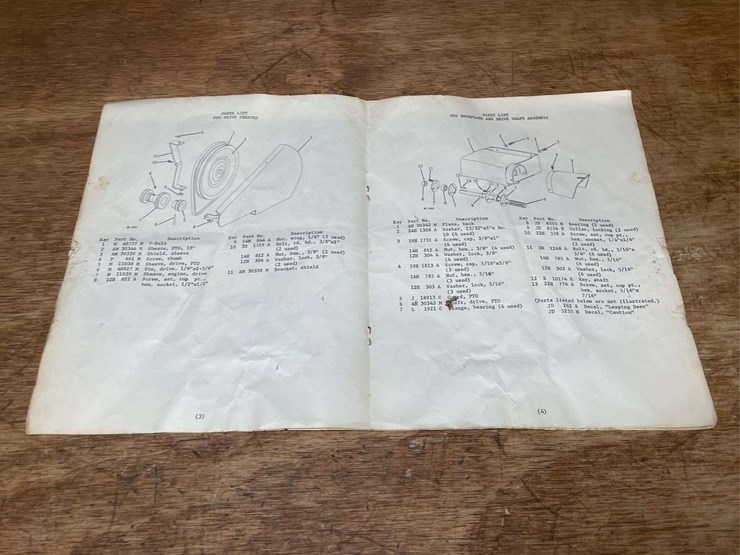 PARTS LIST
PTO DRIVE SHEAVES
Key Part No. Description
1 M V-Belt
2 AM 30344 M Sheave, PTO, 12"
3 AM 30339 M Shield, sheave
4 M 661 M Screw, thumb
5 M 11038 M Sheave, drive, PTO
6 M 40827 M Pin, drive, 1/4"x2-3/4"
7 M 11036 M Sheave, engine, drive
8 22H 821 A Screw, set, cup pt.,
hex. socket, 1/2"x1/2"
Key Part No. Description
9 14H 846 A Nut, wing, 1/4" (2 used)
10 3H 1319 A Bolt, rd. hd., 3/8"x1"
(2 used)
14H 812 A Nut, hex., 3/8" (2 used)
12H 304 A Washer, lock, 3/8"
(2 used)
11 AM 30338 M Bracket, shield
(3)
PARTS LIST
PTO BACKPLATE AND DRIVE SHAFT ASSEMBLY
Key Part No. Description
1 AM 30342 M Plate, back
2 24H 1308 A Washer, 13/32"x1"x No.
10 (4 used)
3 19H 1731 A Screw, cap, 3/8"x1"
(4 used)
14H 812 A Nut, hex., 3/8" (4 used)
12H 304 A Washer, lock, 3/8"
(4 used)
4 19H 1813 A Screw, cap, 5/16"x5/8"
(3 used)
14H 785 A Nut, hex., 5/16"
(3 used)
12H 303 A Washer, lock, 5/16"
(3 used)
5 J 18813 C PTO
6 AM 30343 M drive, PTO
7 L 1921 C bearing (4 used)
Key Part No. Description
8 JD Bearing (2 used)
9 JD Collar, locking (2 used)
10 22H A Screw, set, cup pt.,
hex. socket, 1/4"x1/4"
(2 used)
11 3H A Bolt, rd. hd., 5/16"x
3/4" (6 used)
14H 785 A Nut, hex., 5/16"
(6 used)
12H 303 A Washer, lock, 5/16"
(6 used)
12 E Key, shaft
13 22H 776 A Screw, set, cup pt.,
hex. socket, 5/16"x
7/16"
(Parts listed below are not illustrated.)
JD 262 R Decal, "Leaping Deer"
JD 5235 R Decal, "Caution"
(4)